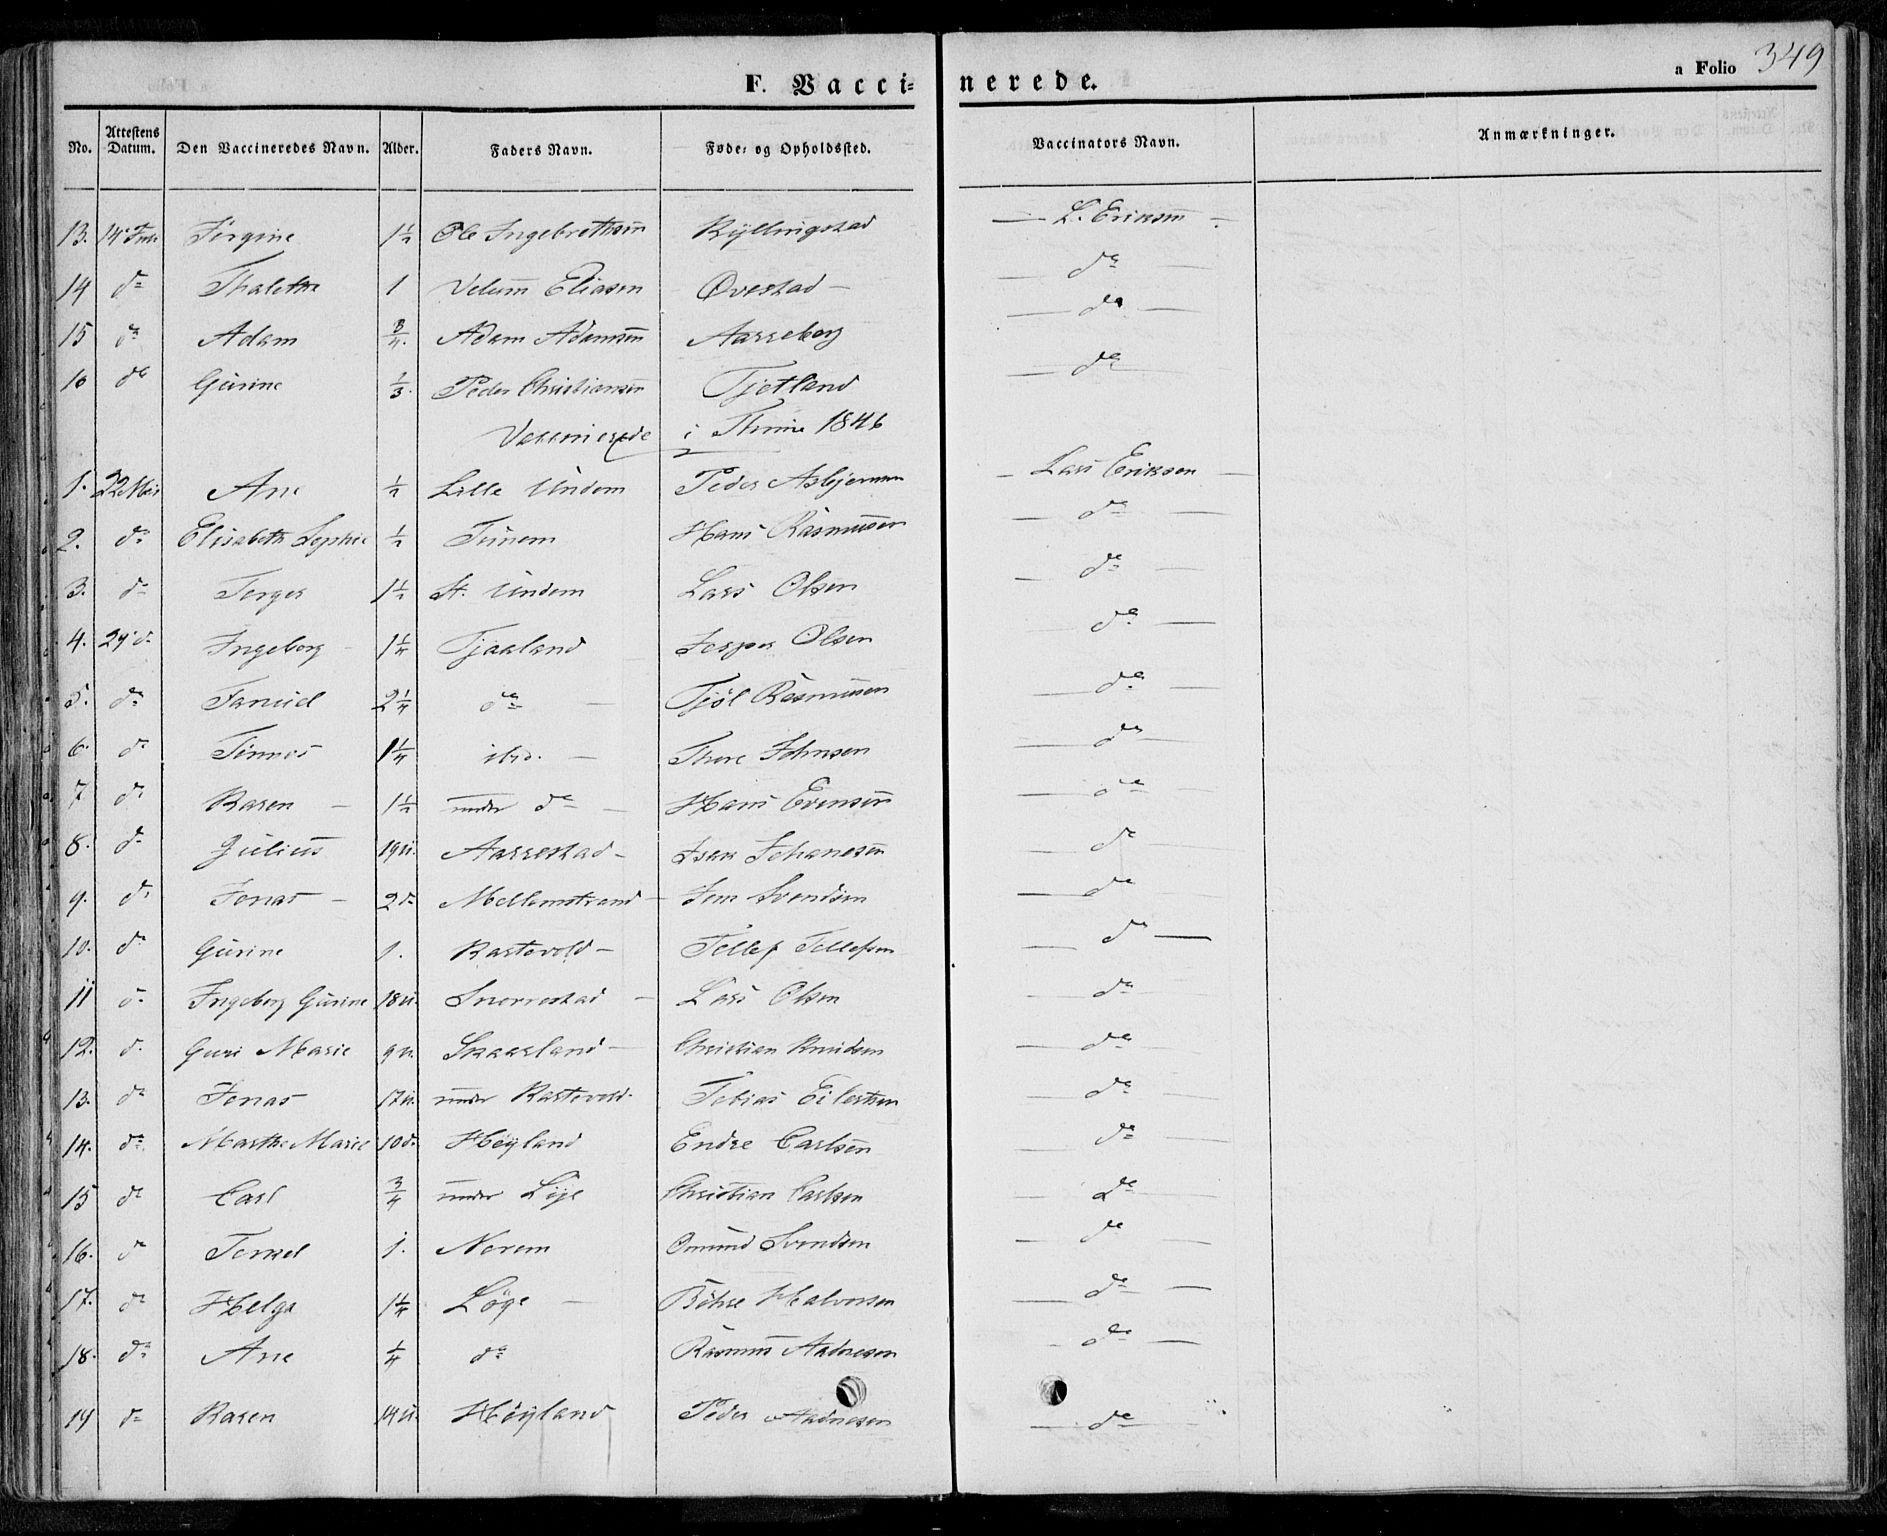 a Folio 349
F. Vacci= nerede.
No. Attestens Datum. Den Vaccineredes Navn. Alder. Faders Navn. Føde= og Opholdssted. Vaccinators Navn. Anmærkninger.
13. 14 Jörgine 1½ Ole Ingebrethsen Kyllingstad — L. Eriksen —
14 do Thalethe 1 Velum Eliasen Ovestad — do —
15 do Adam ¾ Adam Adamsen Aarreberg — do —
16 do Gurine ⅓ Peder Christiansen Tjetland — do —
Vaccinerede i Thime 1846
1. 22 Mai Ane ½ Lille Undem Peder Asbjernsen — Lars Eriksen —
2. do Elisabeth Sophie ½ Tunem Hans Rasmussen — do —
3. do Terger 1½ St. Undem Lars Olsen — do —
4. 29 do Ingeborg 1¼ Tjaaland Jesper Olsen — do —
5. do 2¼ do — Tjöl Rasmussen — do —
6. do Tönnes 1¼ ibd. — Thore Johnsen — do —
7 do Karen — 1½ under do — Hans Evensen — do —
8. do Julius 19 u. Aarrestad — Isak Johanesen — do —
9. do Jonas — 2 do Mellemstrand — Svendsen — do —
10. do Gurine 1. Kartevold — Tellef Tellefsen — do —
11 do Ingeborg Gurine 18 u. Snorrestad — Lars Olsen — do —
12. do Guri Marie 9 u. Skaarland — Christian Knudsen — do —
13. do Jonas 17 u. under Kartevold. Tobias Eilertsen — do —
14. do Marthe Marie 10 do Höyland Endre Carlsen — do —
15 do Carl ¾ under Löge Christian Carlsen — do —
16. do Torkel 1. Norem Omund Svendsen — do —
17. do Helga 1¼ Löge — Halvorsen — do —
18. do Ane ¼ do Rasmus Aadnesen — do —
19 do Karen 14 u. Höyland Peder Aadnesen — do —